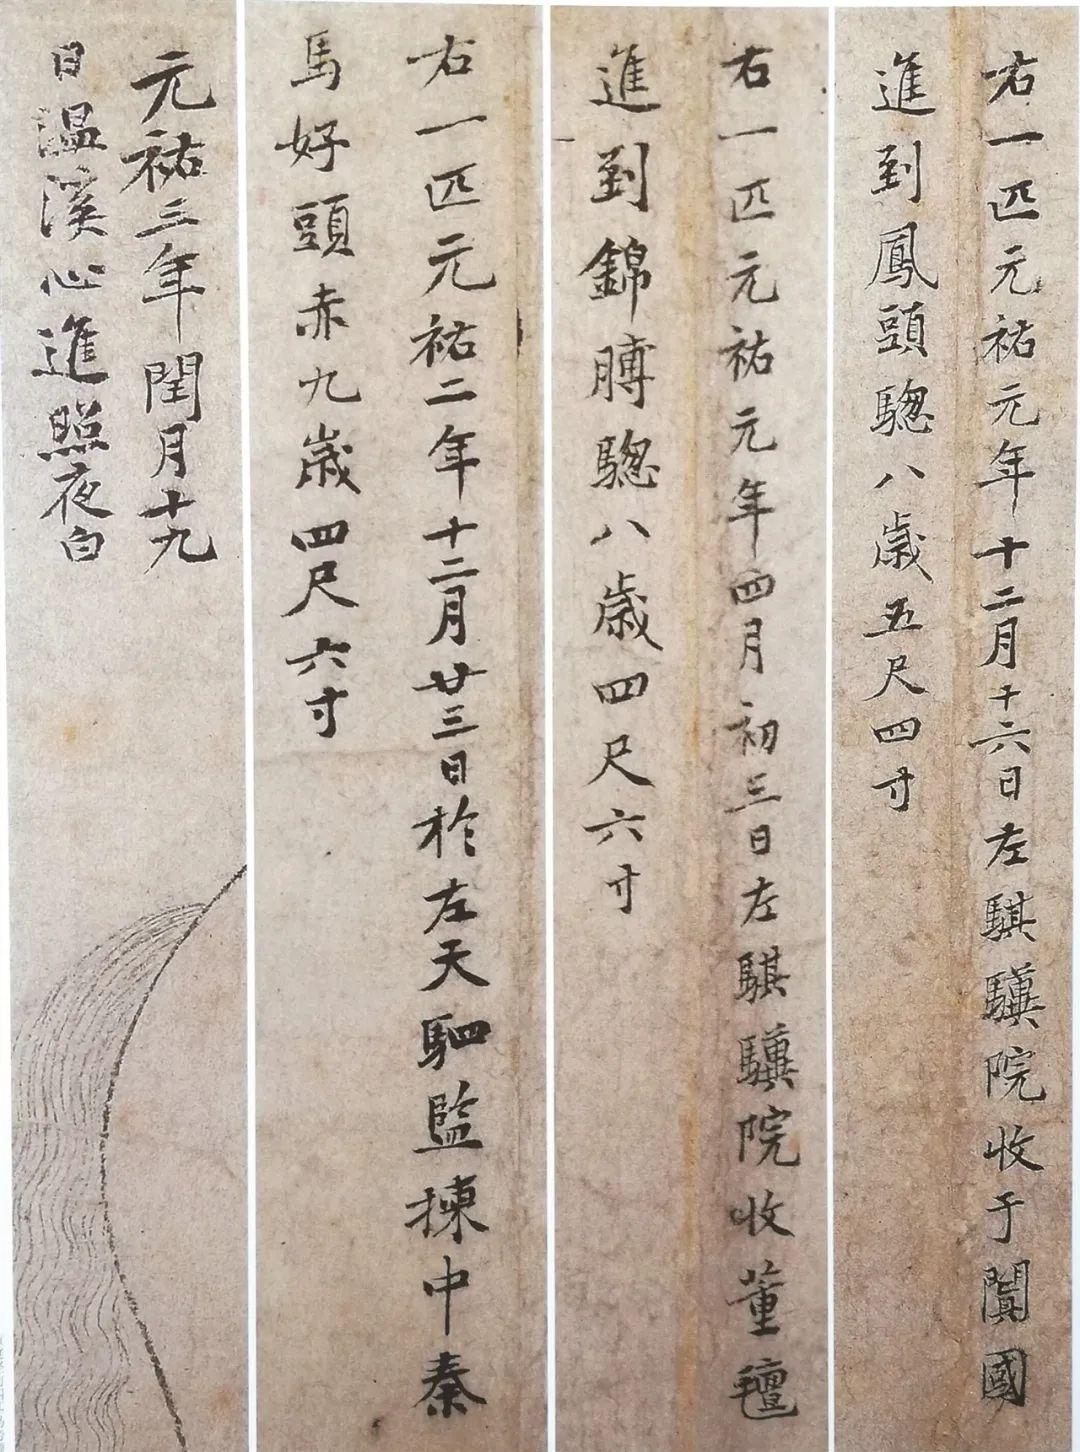 右一匹元祐元年十二月十六日左騏驥院收于闐國
進到鳳頭驄八歲五尺四寸
右一匹元祐元年四月初三日左騏驥院收董氊
進到錦膊驄八歲四尺六寸
右一匹元祐二年十二月廿三日於左天駟監揀中秦
馬好頭赤九歲四尺六寸
元祐三年閏月十九
日溫溪心進照夜白